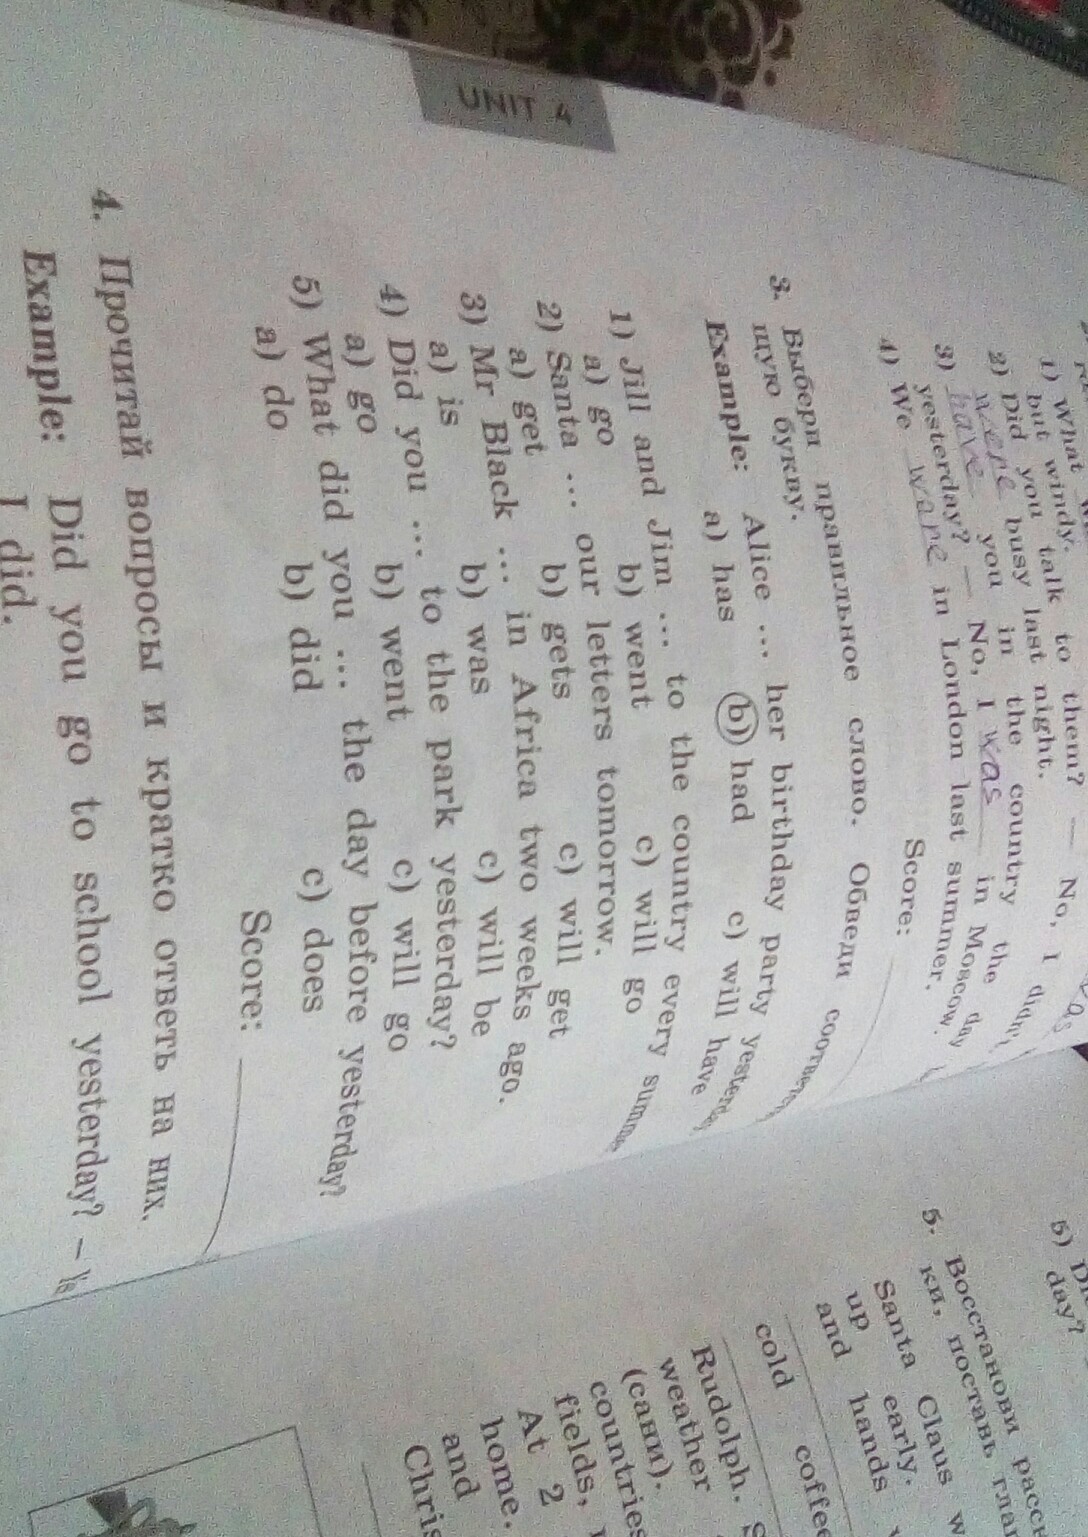 UNIT 4
1) What
but windy.
2) Did you talk to them? — No, I didn't
were busy last night.
3) have you in the country the day
yesterday? — No, I was in Moscow.
4) We ware in London last summer.
Score:
3. Выбери правильное слово. Обведи
щую букву.
Example: Alice ... her birthday party yesterday
a) has b) had c) will have
1) Jill and Jim ... to the country every
a) go b) went c) will go
2) Santa ... our letters tomorrow.
a) get b) gets c) will get
3) Mr Black ... in Africa two weeks ago.
a) is b) was c) will be
4) Did you ... to the park yesterday?
a) go b) went c) will go
5) What did you ... the day before yesterday?
a) do b) did c) does
Score:
4. Прочитай вопросы и кратко ответь на них.
Example: Did you go to school yesterday? –
I did.
5)
day?
5. Восстанови
ки, поставь
Santa Claus
up early.
and hands
cold coffee
Rudolph.
weather
(сани).
countries
fields,
At 2
home.
and